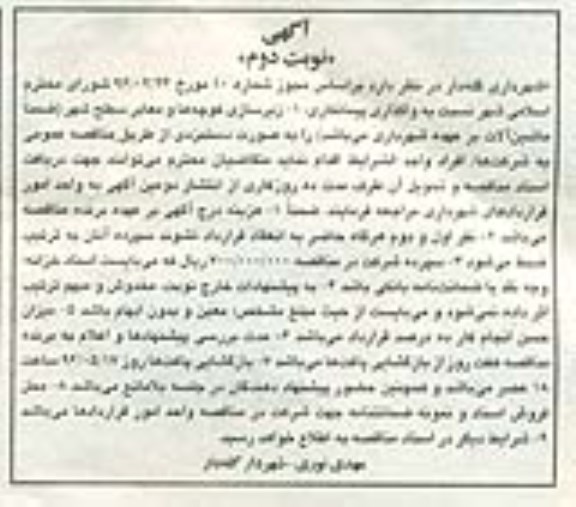 آگهی
«نوبت دوم»
شهرداری گله‌دار در نظر دارد براساس مجوز شماره ۱۰ مورخ ۹۲/۰۲/۲۳ شورای محترم
اسلامی شهر نسبت به واگذاری پیمانکاری، ۱- زیرسازی کوچه‌ها و معابر سطح شهر (ضمنا
ماشین‌آلات بر عهده شهرداری می‌باشد) را به صورت دستمزدی از طریق مناقصه عمومی
به شرکت‌ها/ افراد واجد الشرایط اقدام نماید متقاضیان محترم می‌توانند جهت دریافت
اسناد مناقصه و تحویل آن ظرف مدت ده روز کاری از انتشار دومین آگهی به واحد امور
قراردادهای شهرداری مراجعه فرمایند. ضمناً ۱- هزینه درج آگهی بر عهده برنده مناقصه
می‌باشد ۲- نفر اول و دوم هرگاه حاضر به انعقاد قرارداد نشوند سپرده آنان به ترتیب
ضبط می‌شود ۳- سپرده شرکت در مناقصه ریال که می‌بایست اسناد خزانه
وجه نقد یا ضمانت‌نامه بانکی باشد ۴- به پیشنهادات خارج نوبت، مخدوش و مبهم ترتیب
اثر داده نمی‌شود و می‌بایست از حیث مبلغ مشخص، معین و بدون ابهام باشد ۵- میزان
حسن انجام کار ده درصد قرارداد می‌باشد ۶- مدت بررسی پیشنهادها و اعلام به برنده
مناقصه هفت روز از بازگشایی پاکت‌ها می‌باشد ۷- بازگشایی پاکت‌ها روز ۹۲/۰۵/۱۷ ساعت
۱۸ عصر می‌باشد و همچنین حضور پیشنهاد دهندگان در جلسه بلامانع می‌باشد ۸- محل
فروش اسناد و نمونه ضمانتنامه جهت شرکت در مناقصه واحد امور قراردادها می‌باشد
۹- شرایط دیگر در اسناد مناقصه به اطلاع خواهد رسید.
مهدی نوری - شهردار گله‌دار